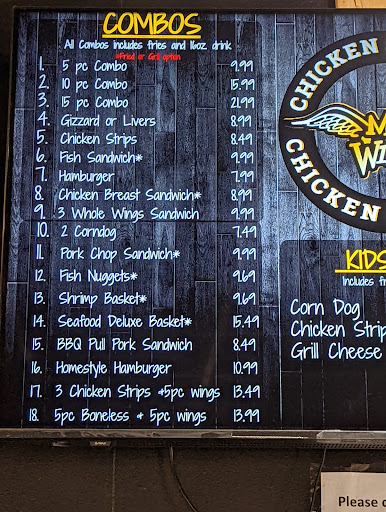 COMBOS
All Combos includes fries and 16oz drink
*Fried or Grill option
1. 5 pc Combo 9.99
2. 10 pc Combo 15.99
3. 15 pc Combo 21.99
4. Gizzard or Livers 8.99
5. Chicken Strips 8.49
6. Fish Sandwich* 9.99
7. Hamburger 7.99
8. Chicken Breast Sandwich* 8.99
9. 3 Whole Wings Sandwich 9.99
10. 2 Corndog 7.49
11. Pork Chop Sandwich* 9.99
12. Fish Nuggets* 9.69
13. Shrimp Basket* 9.69
14. Seafood Deluxe Basket* 15.49
15. BBQ Pull Pork Sandwich 8.49
16. Homestyle Hamburger 10.99
17. 3 Chicken Strips +5pc wings 13.49
18. 5pc Boneless + 5pc wings 13.99
CHICKEN
CHICKEN
KIDS
Includes fr
Corn Dog
Chicken Strip
Grill Cheese
Please